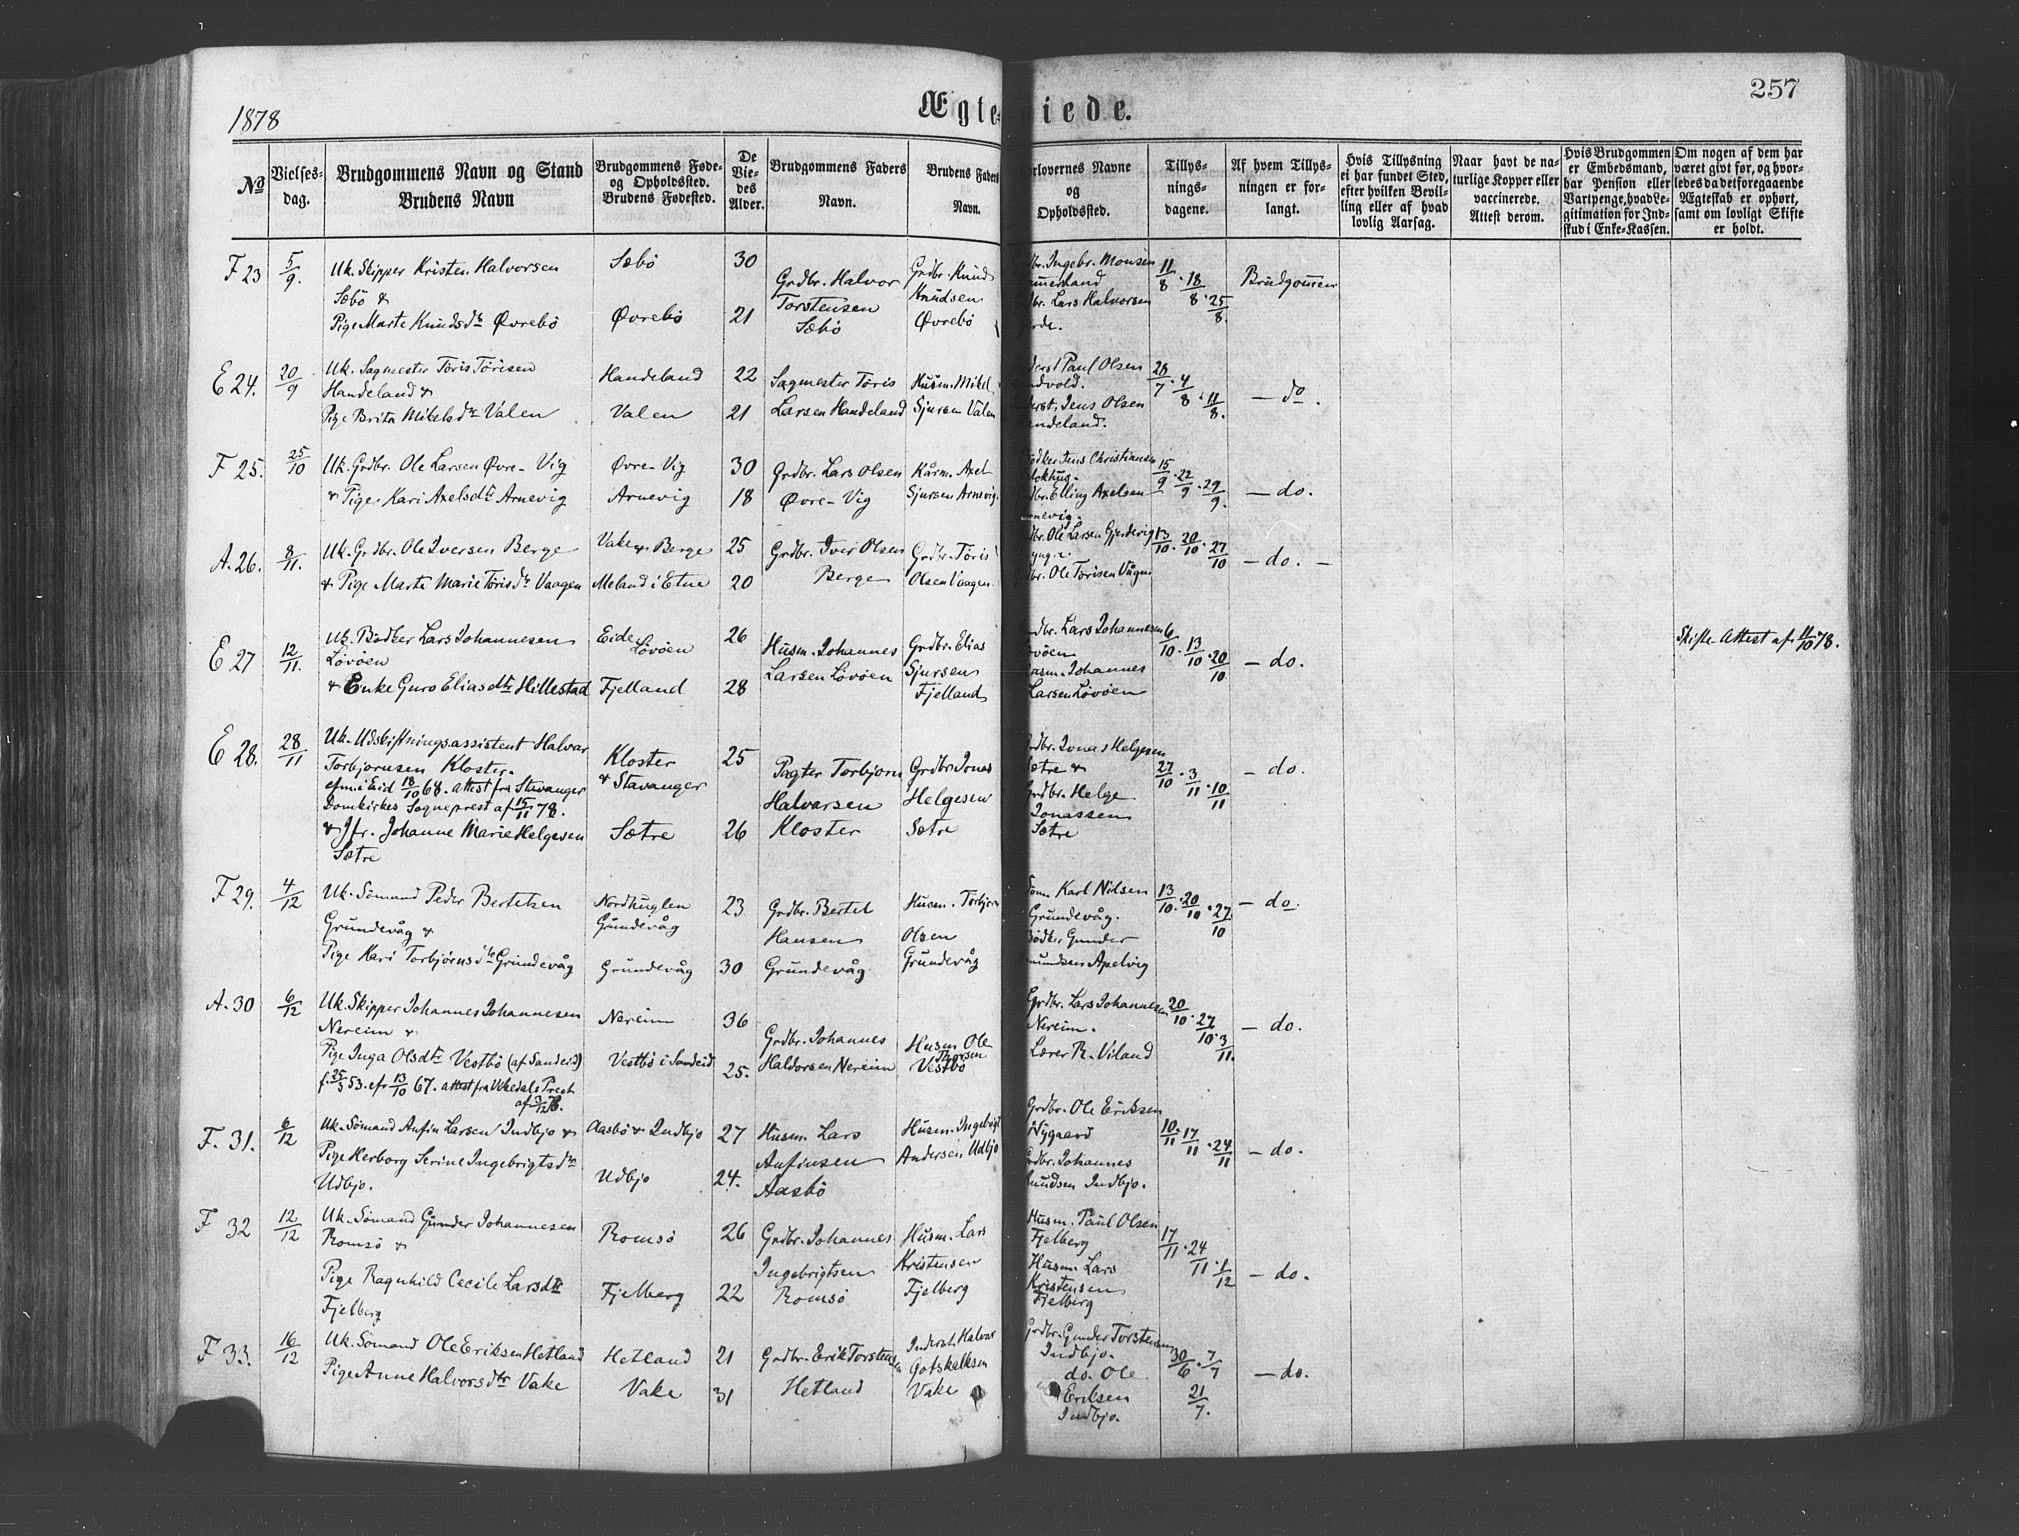 1878
Ægte
iede.
257
No
Vielses-
dag.
Brudgommens Navn og Stand
Brudens Navn
Brudgommens Føde-
og Opholdsted.
Brudens Fødested.
De
Vie-
des
Alder.
Brudgommens Faders
Navn.
Brudens Faders
Navn.
orlovernes Navne
og
Opholdsted.
Tillys-
nings-
dagene.
Af hvem Tillys-
ningen er for-
langt.
Hvis Tillysning
ei har fundet Sted,
efter hvilken Bevil-
ling eller af hvad
lovlig Aarsag.
Naar havt de na-
turlige Kopper eller
vaccinerede.
Attest derom.
Hvis Brudgommen
er Embedsmand,
har Pension eller
Vartpenge, hvad Le-
gitimation for Ind-
skud i Enke-Kassen.
Om nogen af dem har
været givt før, og hvor-
ledes da det foregaaende
Ægteskab er ophørt,
samt om lovligt Skifte
er holdt.
F 23 5/9. Uk. Skipper Kristen Halvorsen
Sæbö &
Pige Marte Knudsdtr Øvrebö
Sæbö 30
Øvrebö 21
Grdbr. Halvor
Torstensen
Sæbö
Grdbr. Knud
Knudsen
Øvrebö
br. Ingebr. Monsen
br. Lars Halvorsen
11/8 . 18/8 . 25/8.
Brudgommen
E 24. 20/9 Uk. Sagmester Töris Törisen
Handeland &
Pige Brita Mikelsdtr Valen
Handeland 22
Valen 21
Sagmester Töris
Larsen Handeland
Husm. Mikel
Sjursen Valen
Paul Olsen
Jens Olsen
andeland.
28/7 . 4/8 . 11/8.
— do.
F 25. 25/10 Uk. Grdbr. Ole Larsen Øvre-Vig
& Pige Kari Axelsdtr Arnevig
Øvre-Vig 30
Arnevig 18
Grdbr. Lars Olsen
Øvre-Vig
Kårm. Axel
Sjursen Arnevig.
ödker Jens Christiansen
br. Elling Axelsen
rnevig.
15/9 . 22/9 . 29/9.
— do.
A. 26. 8/11. Uk. Grdbr. Ole Iversen Berge
& Pige Marta Marie Törisdtr Vaagen
Vake & Berge 25
Meland i Etne 20
Grdbr. Iver Olsen
Berge
Grdbr. Töris
Olsen Vaagen.
br. Ole Larsen Gjerdevig
yngre.
br. Ole Törisen
13/10 . 20/10 . 27/10
— do. —
E 27 12/11. Uk. Bödker Lars Johannesen
Lövöen
& Enke Guro Eliasdtr Hillestad
Eide
Lövöen 26
Fjelland 28
Husm. Johannes
Larsen Lövöen
Grdbr. Elias
Sjursen
Fjelland
dbr. Lars Johannesen
övöen
usm. Johannes
Larsen Lövöen
6/10 . 13/10 . 20/10
— do.
Skifte Attest af 11/10 78.
E 28. 28/11 Uk. Udskiftningsassistent Halvar
Torbjornsen Kloster.
18/10 68. attest fra Stavanger
Domkirkes Sogneprest af 15/11 78.
& Jfr. Johanne Marie Helgesen
Sætre
Kloster
& Stavanger 25
Sætre 26
Pagter Torbjorn
Halvarsen
Kloster
Grdbr. Jonas
Helgesen
Sætre
Grdbr. Jonas Helgesen
Sætre &
Grdbr. Helge
Jonassen
Sætre
27/10 . 3/11 . 10/11
— do.
F 29. 4/12 Uk. Sömand Peder Bertelsen
Grundevåg &
Pige Kari Torbjörnsdtr Grundevåg
Nordhuglen
Grundevåg 23
Grundevåg 30
Grdbr. Bertel
Hansen
Grundevåg
Husm. Torbjörn
Olsen
Grundevåg
Karl Nilsen
Grundevåg.
Bödker Gunder
mundsen Apelvig
13/10 . 20/10 . 27/10
— do.
A. 30 6/12 Uk. Skipper Johannes Johannesen
Nereim &
Pige Inga Olsdtr Vestbö (af Sandeid)
f. 25/5 53. cfr 13/10 67. attest fra Vikedals Prest
af 3/12 78.
Nereim 36
Vestbö i Sandeid 25.
Grdbr. Johannes
Haldorsen Nereim
Husm Ole
Thorsen
Vestbö
Grdbr. Lars Johannesen
Nereim.
Lærer R. Viland
20/10 . 27/10 . 3/11.
— do.
F. 31. 6/12 Uk. Sömand Anfin Larsen Indbjo &
Pige Herborg Serine Ingebrigtsdtr
Udbjo.
Aasbö & Indbjo 27
Udbjo 24.
Husm Lars
Anfinsen
Aasbö
Husm. Ingebrigt
Andersen Udbjo
Grdbr. Ole Eriksen
Nygaard
Grdbr. Johannes
Knudsen Indbjo.
10/11 . 17/11 . 24/11
— do.
F 32 12/12 Uk. Sömand Gunder Johannesen
Romsö &
Pige Ragnhild Cecile Larsdtr
Fjelberg
Romsö 26
Fjelberg 22
Grdbr. Johannes
Ingebrigtsen
Romsö
Husm. Lars
Kristensen
Fjelberg
Husm. Paul Olsen
Fjelberg
Husm. Lars
Kristensen
Fjelberg
17/11 . 24/11 . 1/12
— do.
F 33. 16/12 Uk. Sömand Ole Eriksen Hetland
Pige Anne Halvorsdtr Vake
Hetland 21
Vake 31
Grdbr. Erik Torstensen
Hetland
Inderst Halvar
Gotskalksen
Vake
Grdbr. Gunder Torstensen
Indbjo.
do. Ole
Eriksen
Indbjo.
30/6 . 7/7
21/7.
— do.